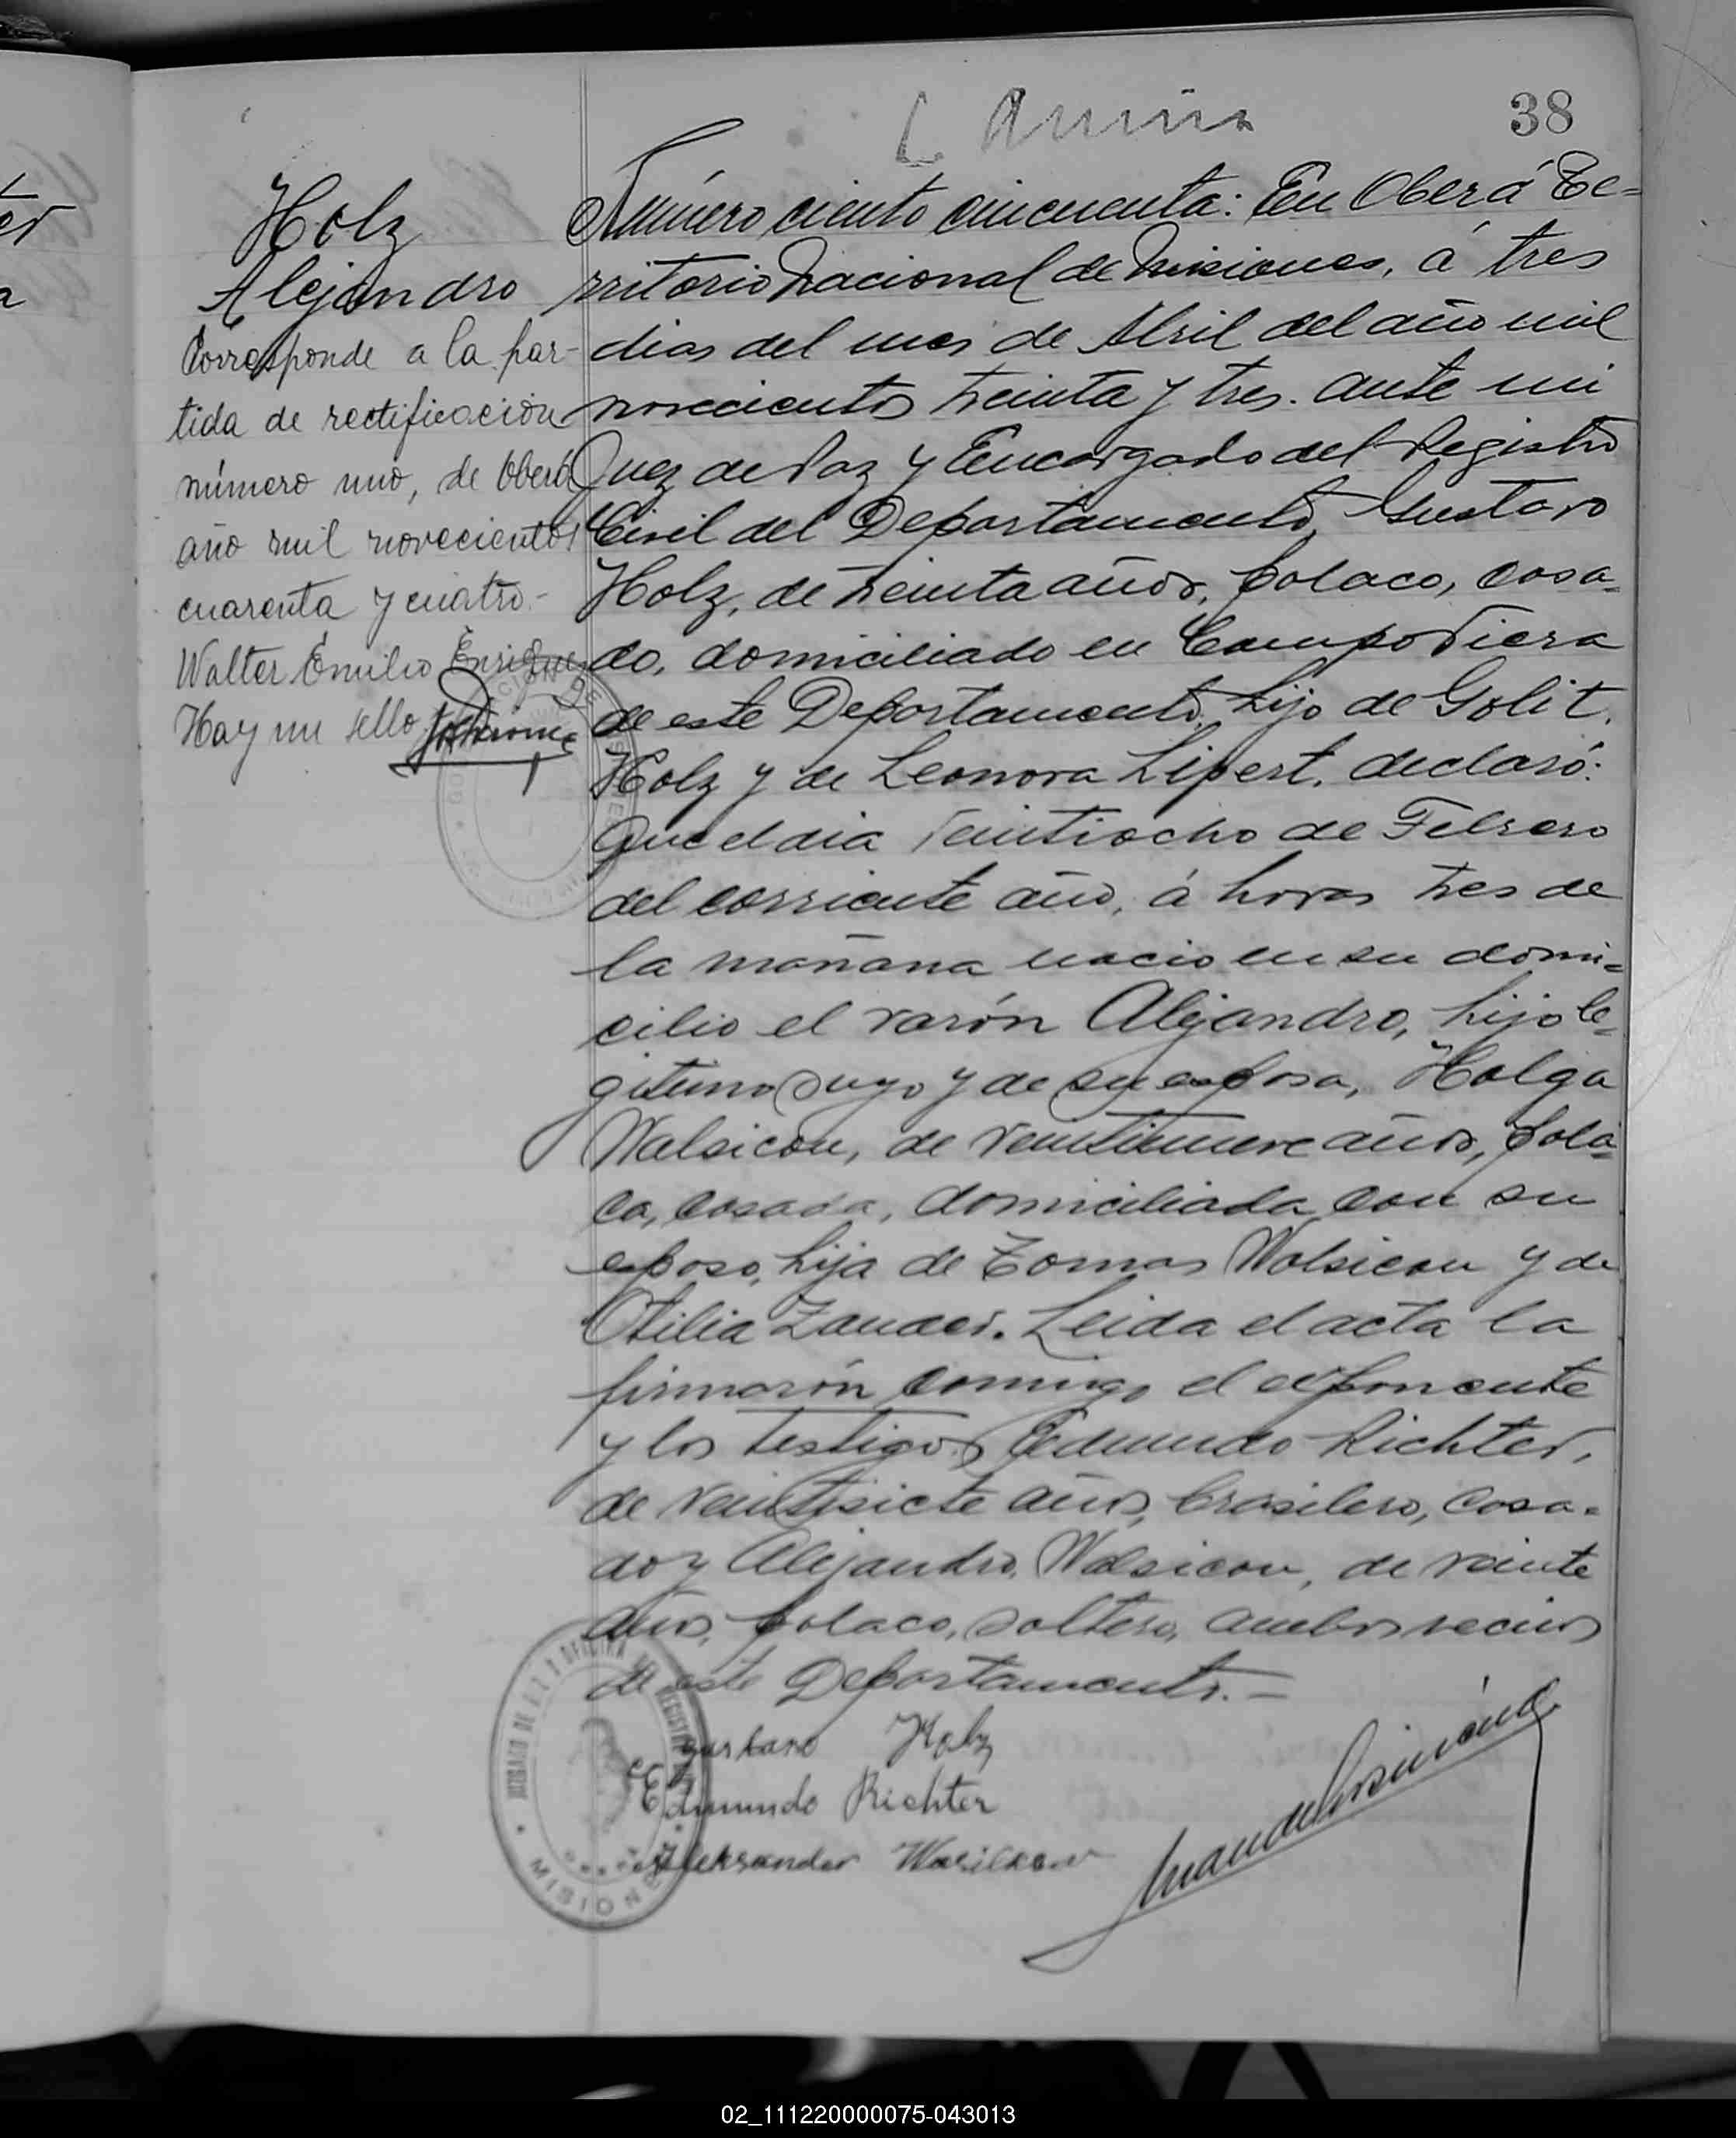 38
Holz
Alejandro
Corresponde a la par-
tida de rectificación
número uno, de Oberá
año mil novecientos
cuarenta y cuatro.-
Walter Emilio Enrique
Hay un sello
Número ciento cincuenta: En Oberá Te=
rritorio Nacional de Misiones, á tres
dias del mes de Abril del año mil
novecientos treinta y tres. ante mi
Juez de Paz y Encargado del Registro
Civil del Departamento, Gustavo
Holz, de treinta años, polaco, casa=
do, domiciliado en Campo Viera
de este Departamento, hijo de Golit.
Holz y de Leonora Lipert, declaró:
Que el dia veintiocho de Febrero
del corriente año, á horas tres de
la mañana nacio en su domi=
cilio el varón Alejandro, hijo le=
gitimo suyo y de su esposa, Holga
Walsicou, de veintinueve años, pola=
ca, casada, domiciliada con su
esposo, hija de Tomas Walsicou y de
Otilia Zander. Leida el acta la
firmarón conmigo el exponente
y los testigos Edmundo Richter,
de veintisiete años, brasilero, casa=
do y Alejandro Walsicou, de veinte
años, polaco, soltero, ambos vecinos
de este Departamento.-
Gustavo Holz
Edmundo Richter
Aleksander
MISIONES
02_111220000075-043013